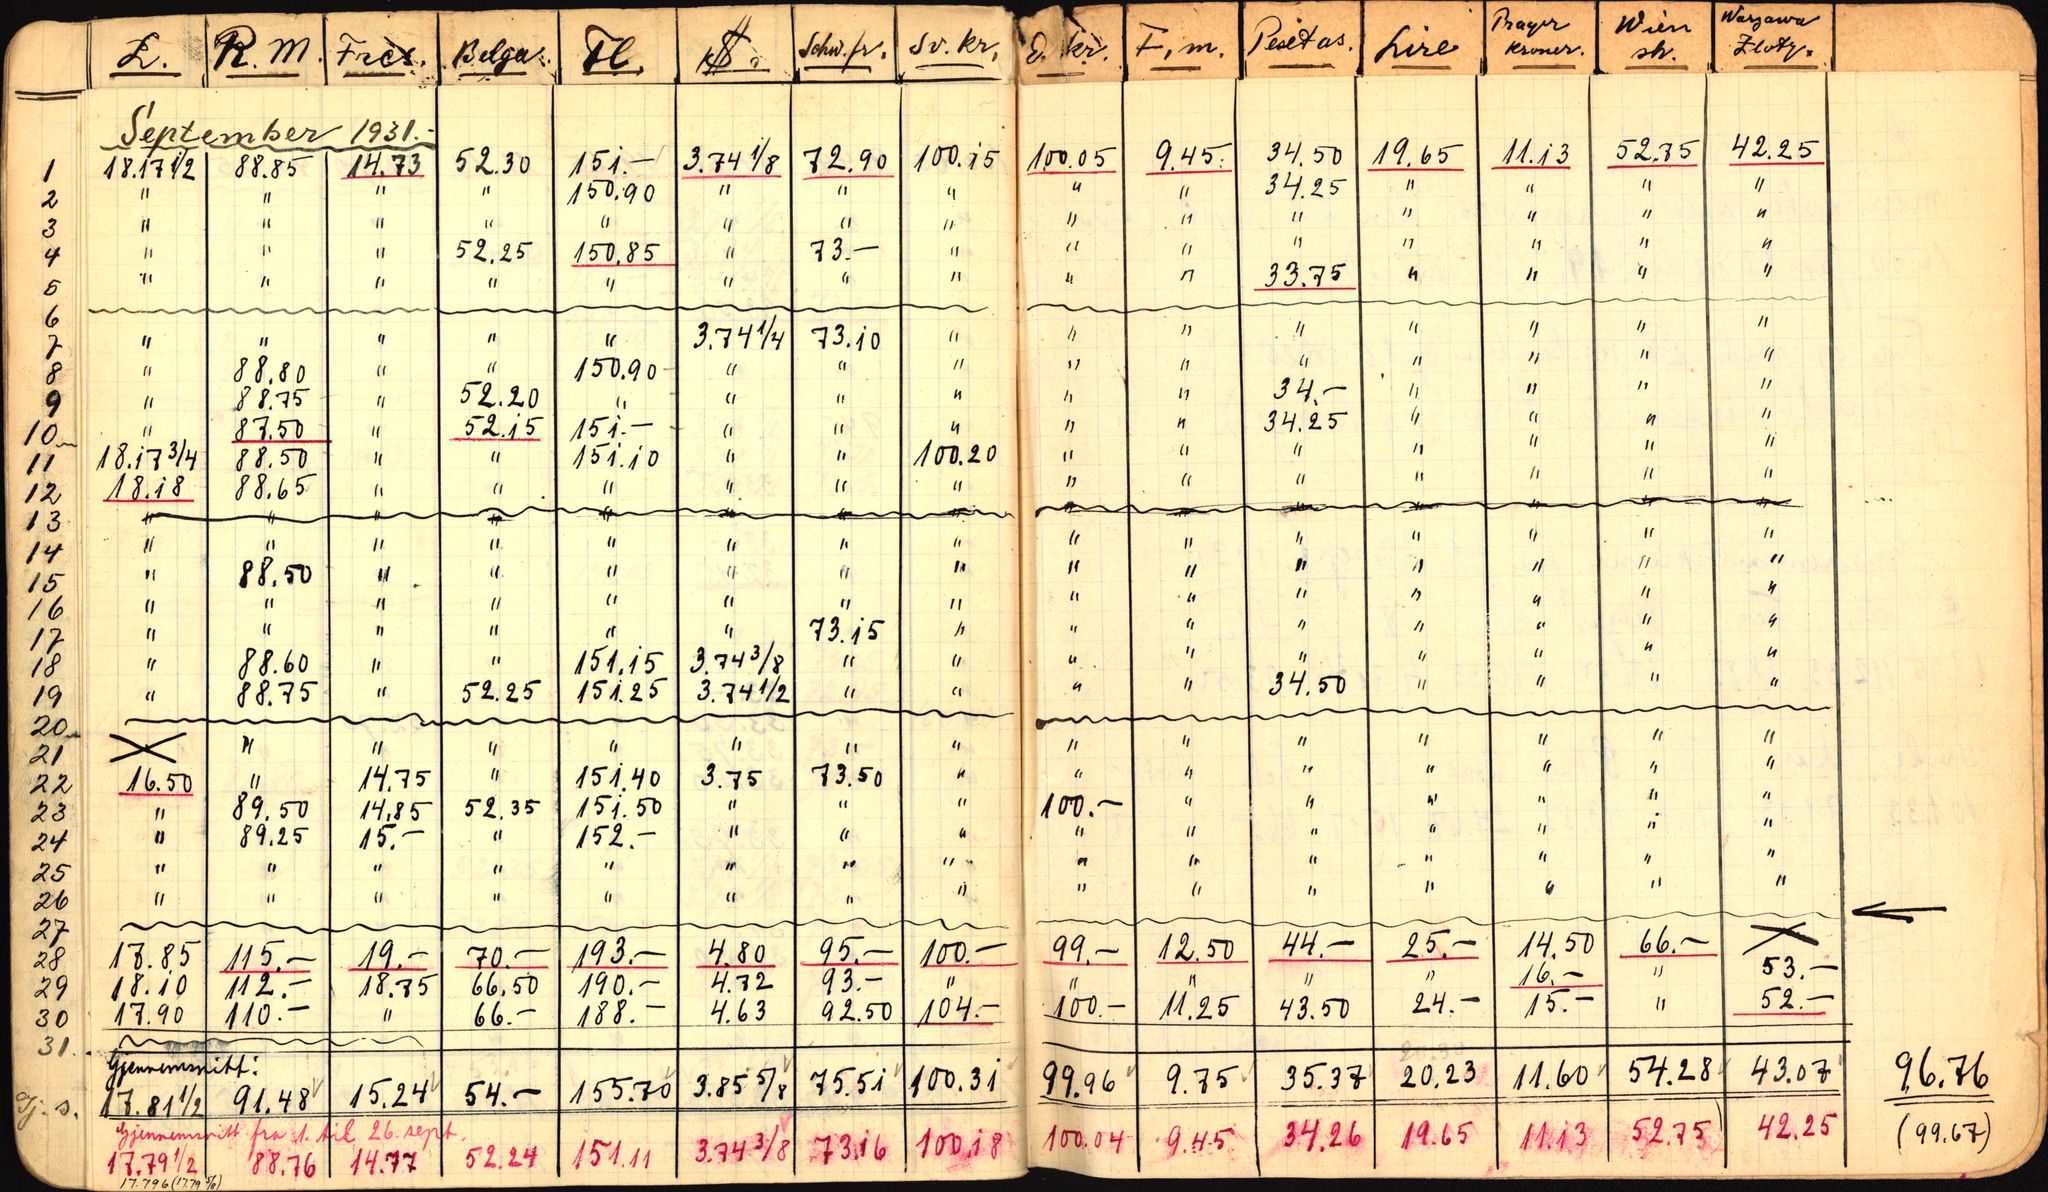 £. R.M. Frcs. Belga. Fl. $. Schw.fr. Sv. kr. D. kr. F.m. Pesetas. Lire Prager kroner. Wien sh. Warzawa Zloty.
September 1931.-
1 18.17 1/2 88.85 14.73 52.30 151.- 3.74 1/8 72.90 100.15 100.05 9.45. 34.50 19.65 11.13 52.75 42.25
2 " " " " 150.90 " " " " " 34.25 " " " "
3 " " " " " " " " " " " " " " "
4 " " " 52.25 150.85 " 73.- " " " " " " " "
5 " " " " " " " " " " 33.75 " " " "
6
7 " " " " " 3.74 1/4 73.10 " " " " " " " "
8 " 88.80 " " 150.90 " " " " " " " " " "
9 " 88.75 " 52.20 " " " " " " 34.- " " " "
10 " 87.50 " 52.15 151.- " " " " " 34.25 " " " "
11 18.17 3/4 88.50 " " 151.10 " " 100.20 " " " " " " "
12 18.18 88.65 " " " " " " " " " " " " "
13 " " " " " " " " " " " " " " "
14 " " " " " " " " " " " " " " "
15 " 88.50 " " " " " " " " " " " " "
16 " " " " " " " " " " " " " " "
17 " " " " " " 73.15 " " " " " " " "
18 " 88.60 " " 151.15 3.74 3/8 " " " " " " " " "
19 " 88.75 " 52.25 151.25 3.74 1/2 " " " " 34.50 " " " "
20
21 " " " " " " " " " " " " " "
22 16.50 " 14.75 " 151.40 3.75 73.50 " " " " " " " "
23 " 89.50 14.85 52.35 151.50 " " " 100.- " " " " " "
24 " 89.25 15.- " 152.- " " " " " " " " " "
25 " " " " " " " " " " " " " " "
26 " " " " " " " " " " " " " " "
27
28 17.85 115.- 19.- 70.- 193.- 4.80 95.- 100.- 99.- 12.50 44.- 25.- 14.50 66.-
29 18.10 112.- 18.75 66.50 190.- 4.72 93.- " " " " " 16.- " 53.-
30 17.90 110.- " 66.- 188.- 4.63 92.50 104.- 100.- 11.25 43.50 24.- 15.- " 52.-
31.
Gjennemsnitt:
Gj. s. 17.81 1/2 91.48 15.24 54.- 155.70 3.85 5/8 75.51 100.31 99.96 9.75 35.37 20.23 11.60 54.28 43.07 96.76
Gjennemsnitt fra 1. til 26. sept.
17.79 1/2 88.76 14.77 52.24 151.11 3.74 3/8 73.16 100.18 100.04 9.45 34.26 19.65 11.13 52.75 42.25 (99.67)
17.796 (17.79 5/8)